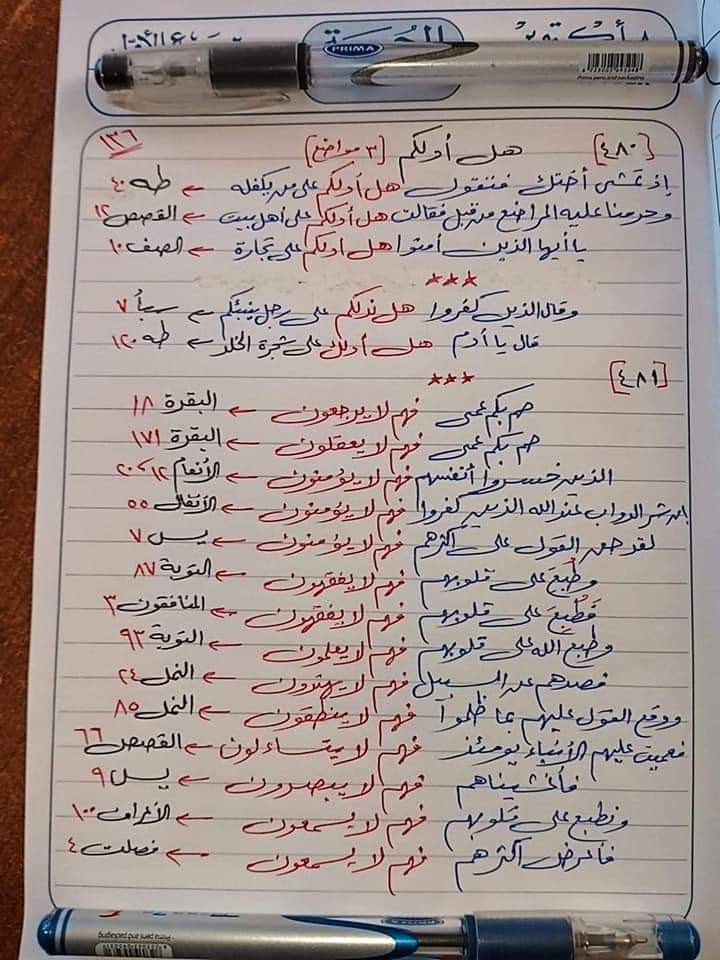 ٨ أكتوبر الجمعة ربيع الأول
PRIMA
Prima pens and packaging
[٤٨٠] هل أدلكم (٣ مواضع) ١٣٦
إذ تمشى أختك فتقول هل أدلكم على من يكفله ← طه ٤٠
وحرمنا عليه المراضع من قبل فقالت هل أدلكم على أهل بيت ← القصص ١٢
يا أيها الذين آمنوا هل أدلكم على تجارة ← الصف ١٠
***
وقال الذين كفروا هل ندلكم على رجل ينبئكم ← سبأ ٧
قال يا آدم هل أدلك على شجرة الخلد ← طه ١٢٠
[٤٨١] ***
صم بكم عمى فهم لا يرجعون ← البقرة ١٨
صم بكم عمى فهم لا يعقلون ← البقرة ١٧١
الذين خسروا أنفسهم فهم لا يؤمنون ← الأنعام ١٢، ٢٠
إن شر الدواب عند الله الذين كفروا فهم لا يؤمنون ← الأنفال ٥٥
لقد حق القول على أكثرهم فهم لا يؤمنون ← يس ٧
وطُبِعَ على قلوبهم فهم لا يفقهون ← التوبة ٨٧
فَطُبِعَ على قلوبهم فهم لا يفقهون ← المنافقون ٣
وطبع الله على قلوبهم فهم لا يعلمون ← التوبة ٩٣
فصدهم عن السبيل فهم لا يهتدون ← النمل ٢٤
ووقع القول عليهم بما ظلموا فهم لا ينطقون ← النمل ٨٥
فعميت عليهم الأنباء يومئذ فهم لا يتساءلون ← القصص ٦٦
فأغشيناهم فهم لا يبصرون ← يس ٩
ونطبع على قلوبهم فهم لا يسمعون ← الأعراف ١٠٠
فأعرض أكثرهم فهم لا يسمعون ← فصلت ٤
Prima pens and packaging